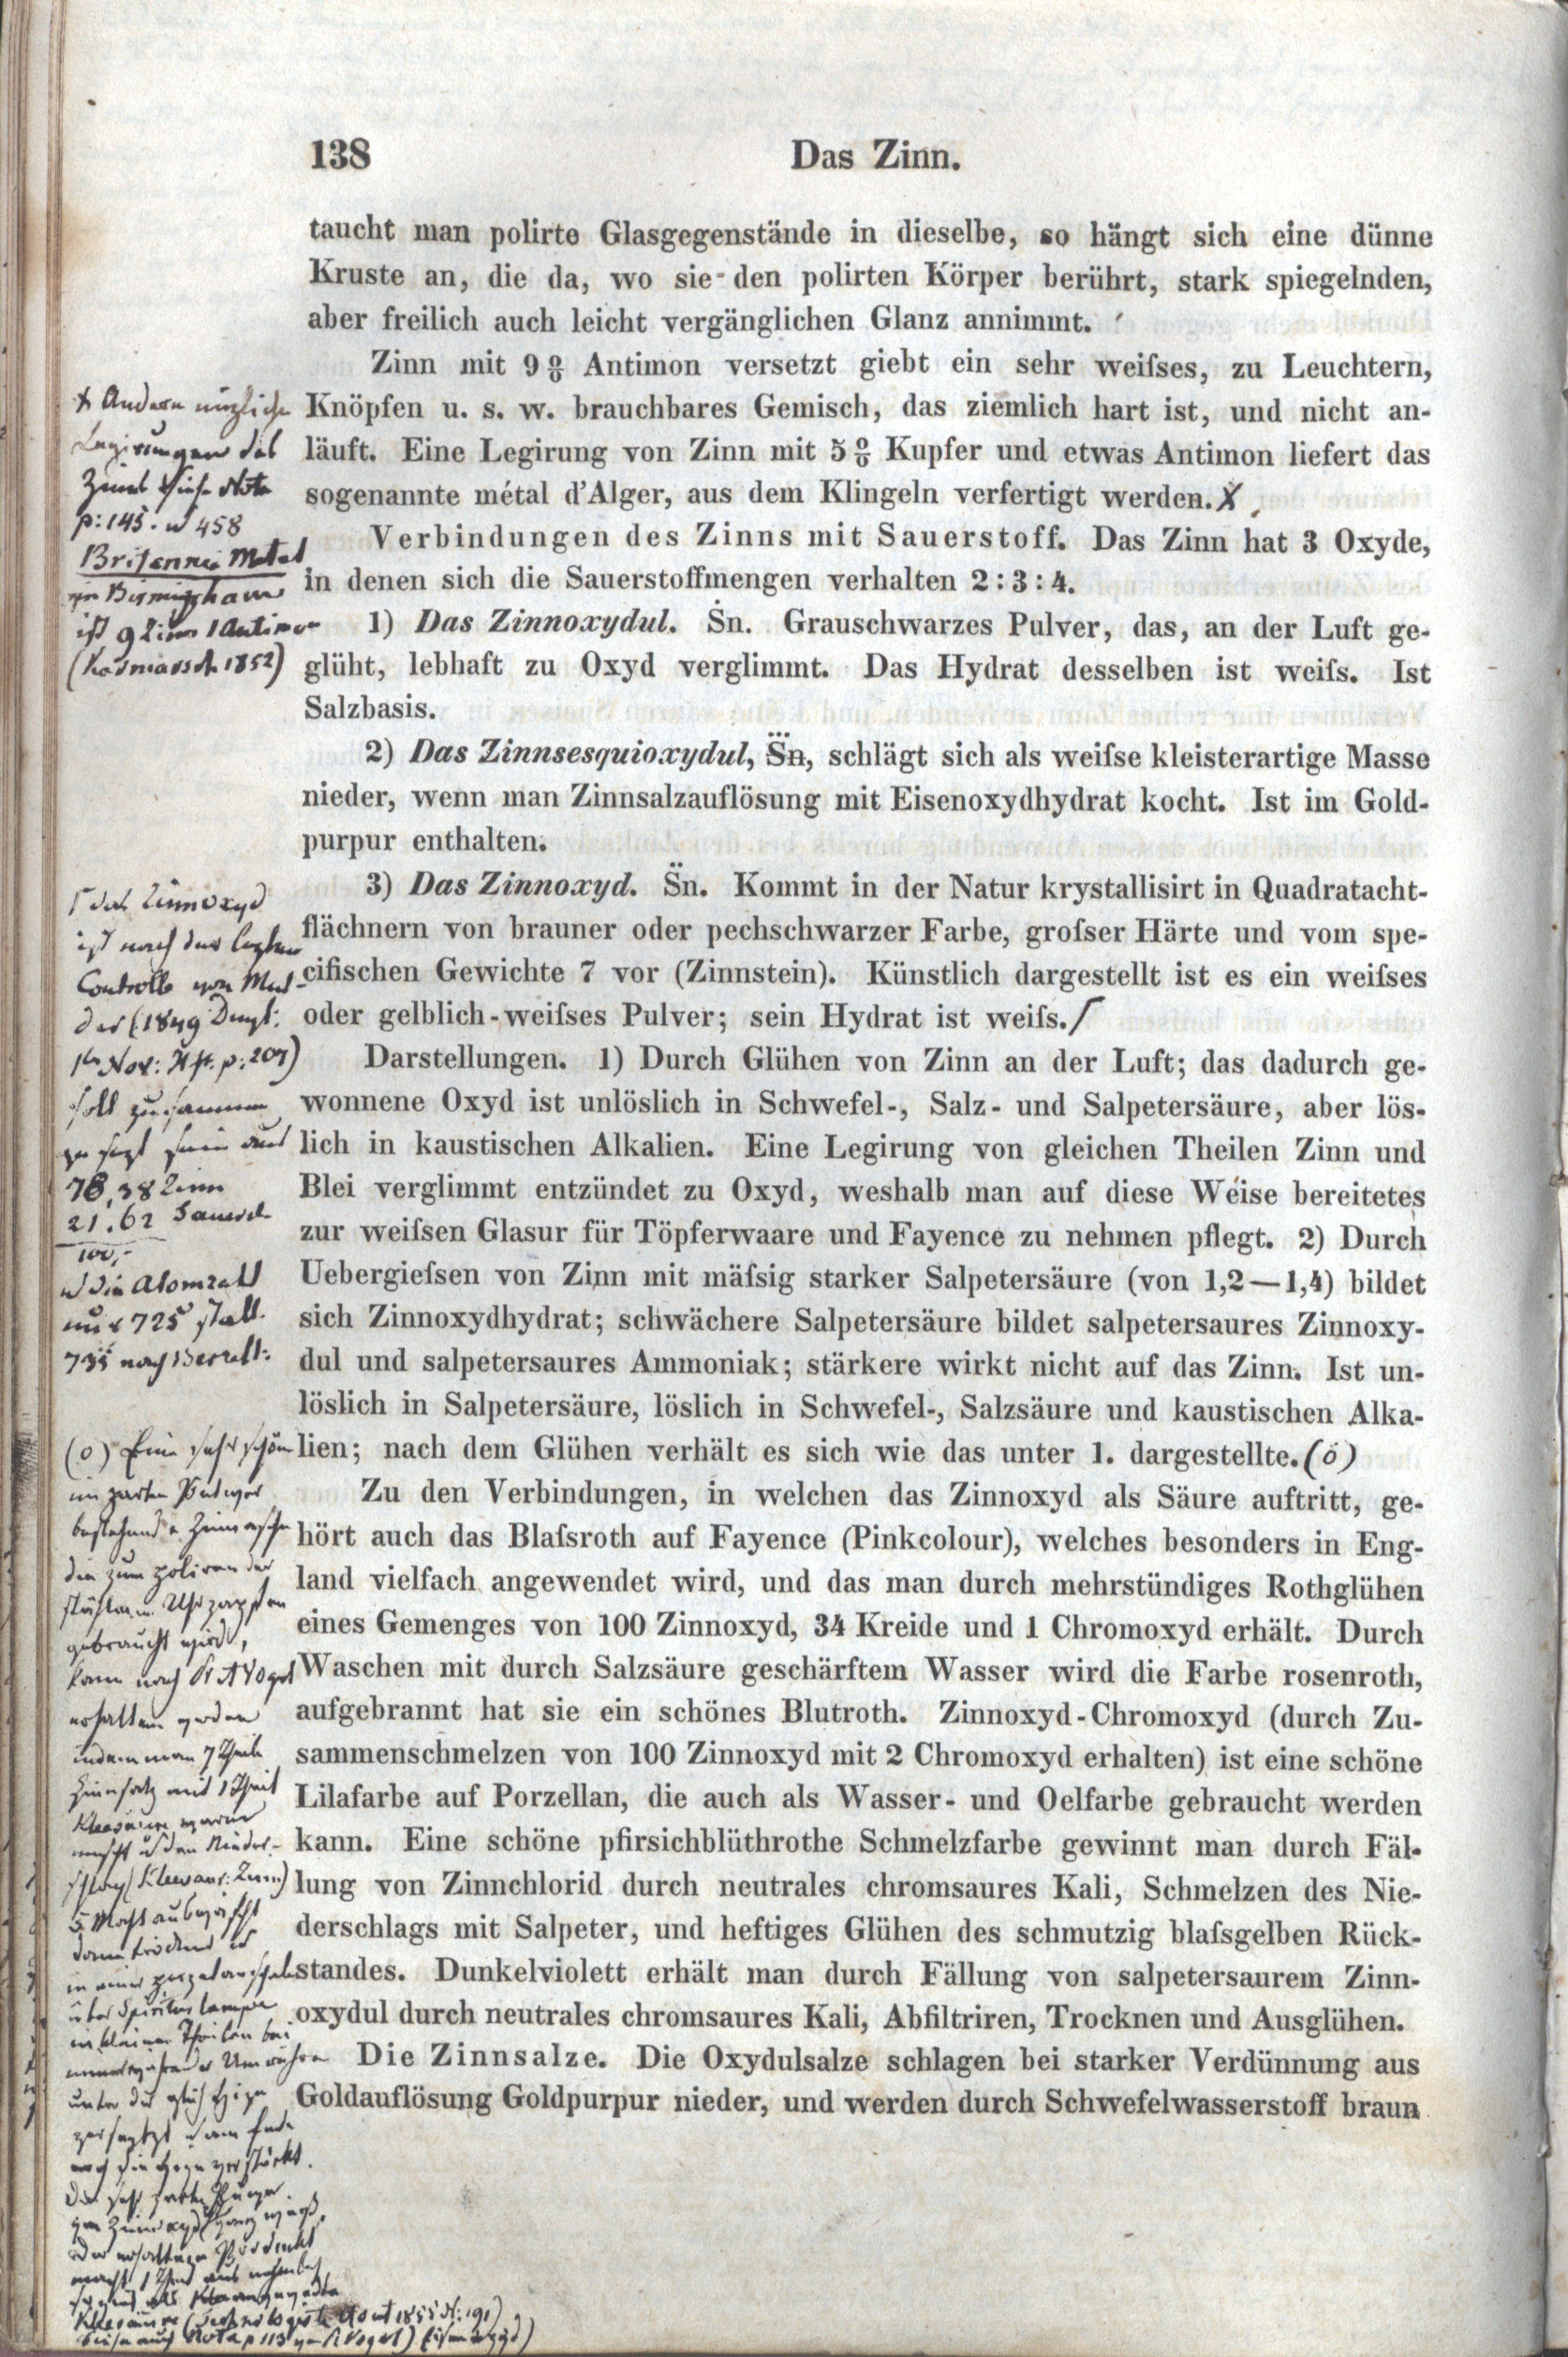 138
Das Zinn.
taucht man polirte Glasgegenstände in dieselbe, so hängt sich eine dünne
Kruste an, die da, wo sie den polirten Körper berührt, stark spiegelnden,
aber freilich auch leicht vergänglichen Glanz annimmt.
Zinn mit 9 % Antimon versetzt giebt ein sehr weiſses, zu Leuchtern,
Knöpfen u. s. w. brauchbares Gemisch, das ziemlich hart ist, und nicht an-
läuft. Eine Legirung von Zinn mit 5 % Kupfer und etwas Antimon liefert das
sogenannte métal d'Alger, aus dem Klingeln verfertigt werden. X
Verbindungen des Zinns mit Sauerstoff. Das Zinn hat 3 Oxyde,
in denen sich die Sauerstoffmengen verhalten 2 : 3 : 4.
1) Das Zinnoxydul. Ṡn. Grauschwarzes Pulver, das, an der Luft ge-
glüht, lebhaft zu Oxyd verglimmt. Das Hydrat desselben ist weiſs. Ist
Salzbasis.
2) Das Zinnsesquioxydul, S⃛n, schlägt sich als weiſse kleisterartige Masse
nieder, wenn man Zinnsalzauflösung mit Eisenoxydhydrat kocht. Ist im Gold-
purpur enthalten.
3) Das Zinnoxyd. S̈n. Kommt in der Natur krystallisirt in Quadratacht-
flächnern von brauner oder pechschwarzer Farbe, groſser Härte und vom spe-
cifischen Gewichte 7 vor (Zinnstein). Künstlich dargestellt ist es ein weiſses
oder gelblich-weiſses Pulver; sein Hydrat ist weiſs. ſ
Darstellungen. 1) Durch Glühen von Zinn an der Luft; das dadurch ge-
wonnene Oxyd ist unlöslich in Schwefel-, Salz- und Salpetersäure, aber lös-
lich in kaustischen Alkalien. Eine Legirung von gleichen Theilen Zinn und
Blei verglimmt entzündet zu Oxyd, weshalb man auf diese Weise bereitetes
zur weiſsen Glasur für Töpferwaare und Fayence zu nehmen pflegt. 2) Durch
Uebergieſsen von Zinn mit mäſsig starker Salpetersäure (von 1,2—1,4) bildet
sich Zinnoxydhydrat; schwächere Salpetersäure bildet salpetersaures Zinnoxy-
dul und salpetersaures Ammoniak; stärkere wirkt nicht auf das Zinn. Ist un-
löslich in Salpetersäure, löslich in Schwefel-, Salzsäure und kaustischen Alka-
lien; nach dem Glühen verhält es sich wie das unter 1. dargestellte. (o)
Zu den Verbindungen, in welchen das Zinnoxyd als Säure auftritt, ge-
hört auch das Blaſsroth auf Fayence (Pinkcolour), welches besonders in Eng-
land vielfach angewendet wird, und das man durch mehrstündiges Rothglühen
eines Gemenges von 100 Zinnoxyd, 34 Kreide und 1 Chromoxyd erhält. Durch
Waschen mit durch Salzsäure geschärftem Wasser wird die Farbe rosenroth,
aufgebrannt hat sie ein schönes Blutroth. Zinnoxyd-Chromoxyd (durch Zu-
sammenschmelzen von 100 Zinnoxyd mit 2 Chromoxyd erhalten) ist eine schöne
Lilafarbe auf Porzellan, die auch als Wasser- und Oelfarbe gebraucht werden
kann. Eine schöne pfirsichblüthrothe Schmelzfarbe gewinnt man durch Fäl-
lung von Zinnchlorid durch neutrales chromsaures Kali, Schmelzen des Nie-
derschlags mit Salpeter, und heftiges Glühen des schmutzig blaſsgelben Rück-
standes. Dunkelviolett erhält man durch Fällung von salpetersaurem Zinn-
oxydul durch neutrales chromsaures Kali, Abfiltriren, Trocknen und Ausglühen.
Die Zinnsalze. Die Oxydulsalze schlagen bei starker Verdünnung aus
Goldauflösung Goldpurpur nieder, und werden durch Schwefelwasserstoff braun
Andere nüzliche
Legirungen des
Zinns siehe Nota
p: 145. u 458
Britannia Metal
von Birmingham
ist 9 Zinn 1 Antimon
(Karmarsch 1852)
das Zinnoxyd
ist nach der lezten
Controlle von Mul-
der (1849 Dingl:
Nov: Hft. p: 207)
soll zusammen
gesezt sein aus
78,38 Zinn
21.62 Sauerst
100,-
u die Atomzahl
nur 725 statt
735 nach Berzel:
(o) Eine sehr schöne
im zarten Pulver
bestehende Zinnasche
die zum poliren der
Uhrzapfen
gebraucht wird,
kann nach Vogel
erhalten werden
indem man 7 Theile
Zinnsalz mit 1 Theil
Kleesäure
u den Nieder-
schlag (Kleesaur: Zinn)
dann trocknet u
in einer
über Spirituslampe
in kleinen Theilen bei
Umrühren